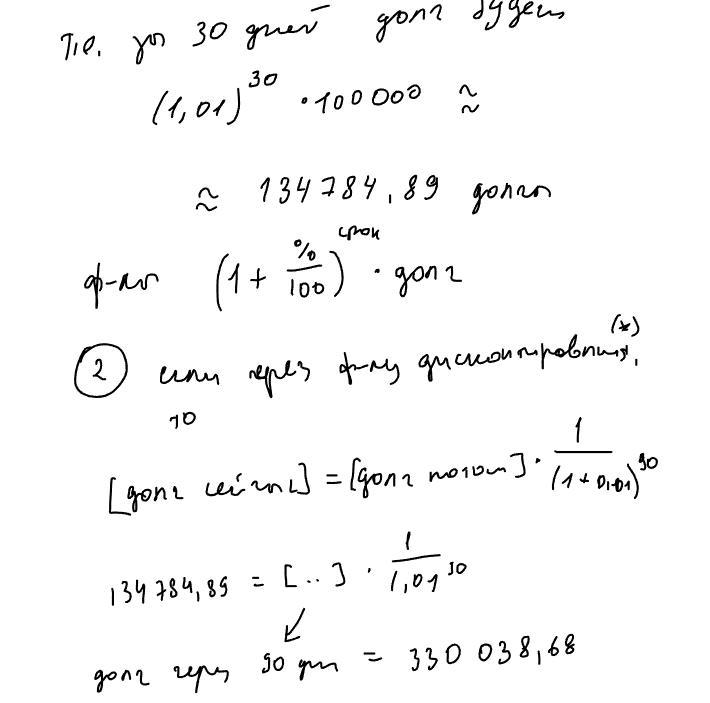 т.е. за 30 дней долг будет
(1,01)^30 · 100 000 ≈
≈ 134 784,89 долга
ф-ла (1 + %/100)^срок · долг
② если через ф-лу дисконтирования, (*)
то
[долг сейчас] = [долг потом] · 1/(1+0,01)^90
134 784,89 = [..] · 1/1,01^90
долг через 90 дн = 330 038,68